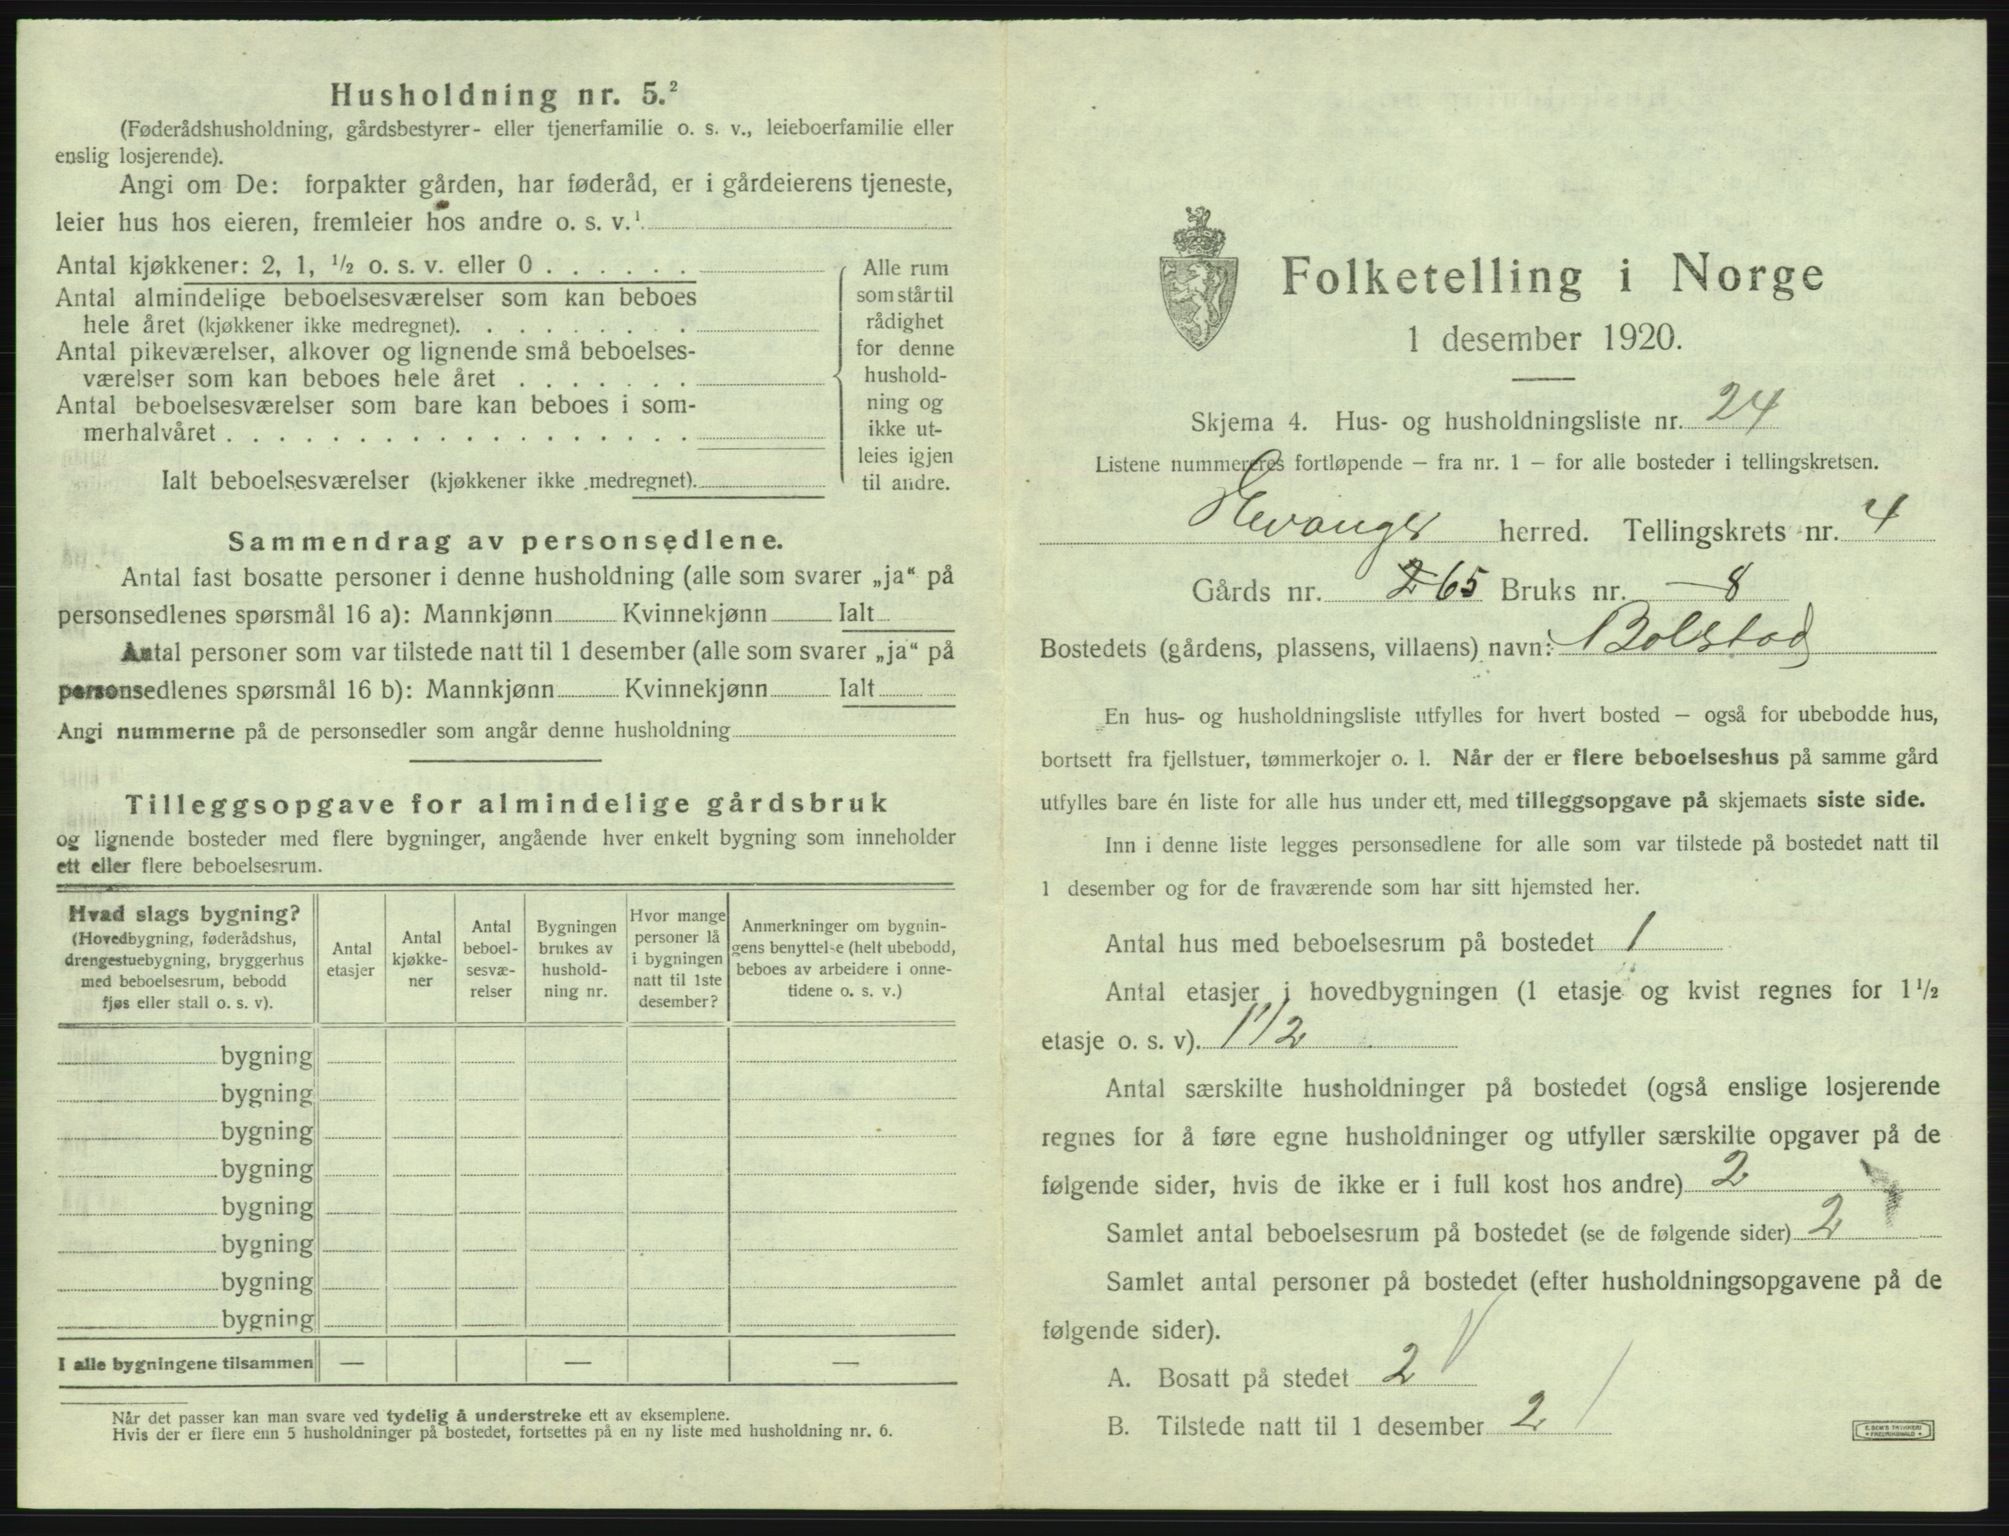 Husholdning nr. 5.²
(Føderådshusholdning, gårdsbestyrer- eller tjenerfamilie o. s. v., leieboerfamilie eller
enslig losjerende).
Angi om De: forpakter gården, har føderåd, er i gårdeierens tjeneste,
leier hus hos eieren, fremleier hos andre o. s. v.¹
Antal kjøkkener: 2, 1, ½ o. s. v. eller 0 . . . . . .
Antal almindelige beboelsesværelser som kan beboes
hele året (kjøkkener ikke medregnet). . . . . . . . .
Antal pikeværelser, alkover og lignende små beboelses-
værelser som kan beboes hele året . . . . . . .
Antal beboelsesværelser som bare kan beboes i som-
merhalvåret . . . . . . . . . . . . . . . .
Ialt beboelsesværelser (kjøkkener ikke medregnet).
Alle rum
som står til
rådighet
for denne
hushold-
ning og
ikke ut-
leies igjen
til andre.
Sammendrag av personsedlene.
Antal fast bosatte personer i denne husholdning (alle som svarer „ja“ på
personsedlenes spørsmål 16 a): Mannkjønn Kvinnekjønn Ialt
Antal personer som var tilstede natt til 1 desember (alle som svarer „ja“ på
personsedlenes spørsmål 16 b): Mannkjønn Kvinnekjønn Ialt
Angi nummerne på de personsedler som angår denne husholdning
Tilleggsopgave for almindelige gårdsbruk
og lignende bosteder med flere bygninger, angående hver enkelt bygning som inneholder
ett eller flere beboelsesrum.
Hvad slags bygning?
(Hovedbygning, føderådshus,
drengestuebygning, bryggerhus
med beboelsesrum, bebodd
fjøs eller stall o. s. v).
Antal
etasjer
Antal
kjøkke-
ner
Antal
beboel-
sesvæ-
relser
Bygningen
brukes av
hushold-
ning nr.
Hvor mange
personer lå
i bygningen
natt til 1ste
desember?
Anmerkninger om bygnin-
gens benyttelse (helt ubebodd,
beboes av arbeidere i onne-
tidene o. s. v.)
bygning
bygning
bygning
bygning
bygning
bygning
bygning
bygning
I alle bygningene tilsammen — — —
Når det passer kan man svare ved tydelig å understreke ett av eksemplene.
Hvis der er flere enn 5 husholdninger på bostedet, fortsettes på en ny liste med husholdning nr. 6.
Folketelling i Norge
1 desember 1920.
Skjema 4. Hus- og husholdningsliste nr. 24
Listene nummereres fortløpende – fra nr. 1 – for alle bosteder i tellingskretsen.
Evanger herred. Tellingskrets nr. 4
Gårds nr. 265 Bruks nr. 8
Bostedets (gårdens, plassens, villaens) navn: Bolstad
En hus- og husholdningsliste utfylles for hvert bosted – også for ubebodde hus,
bortsett fra fjellstuer, tømmerkojer o. l. Når der er flere beboelseshus på samme gård
utfylles bare én liste for alle hus under ett, med tilleggsopgave på skjemaets siste side.
Inn i denne liste legges personsedlene for alle som var tilstede på bostedet natt til
1 desember og for de fraværende som har sitt hjemsted her.
Antal hus med beboelsesrum på bostedet 1
Antal etasjer i hovedbygningen (1 etasje og kvist regnes for 1½
etasje o. s. v). 1 1/2
Antal særskilte husholdninger på bostedet (også enslige losjerende
regnes for å føre egne husholdninger og utfyller særskilte opgaver på de
følgende sider, hvis de ikke er i full kost hos andre) 2
Samlet antal beboelsesrum på bostedet (se de følgende sider) 2
Samlet antal personer på bostedet (efter husholdningsopgavene på de
følgende sider).
A. Bosatt på stedet 2
B. Tilstede natt til 1 desember 2